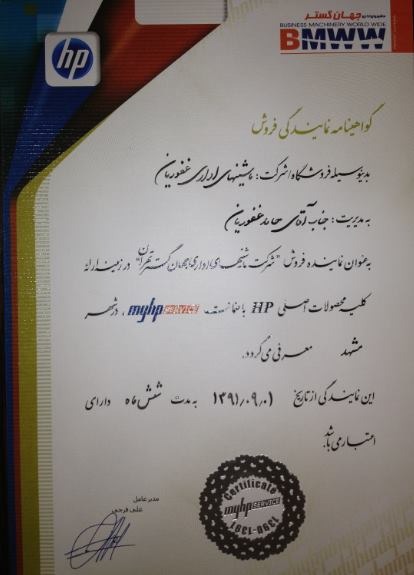 hp
ماشینهای اداری جهان گستر
BUSINESS MACHINERY WORLD WIDE
BMWW
گواهینامه نمایندگی فروش
بدینوسیله فروشگاه/شرکت: ماشینهای اداری غفوریان
به مدیریت: جناب آقای حامد غفوریان
به عنوان نماینده فروش "شرکت ماشینهای اداری جهان گستر تهران" در زمینه ارائه
کلیه محصولات اصلی HP با ضمانت myhp SERVICE ، در شهر
مشهد معرفی می گردد.
این نمایندگی از تاریخ ۱۳۹۱/۰۹/۰۱ به مدت شش ماه دارای
اعتبار می باشد.
Certificate
myhp SERVICE
مدیرعامل
علی فرجی